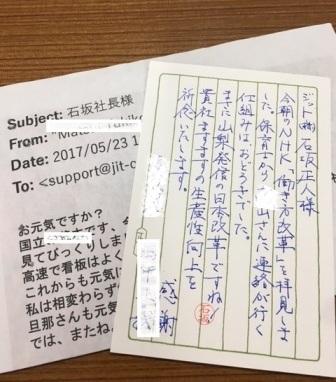 Subject: 石坂社長様
From: "Mats
Date: 2017/05/23 1
To: <support@jit-c
お元気ですか?
国立
見てびっくりしま
高速で看板はよく
これからも元気に
私は相変わらず
旦那さんも元気
では、またね。
ジット㈱石坂正人様
今朝のNHK「働き方改革」を拝見しま
した。保育士から 山さんに連絡が行く
仕組みはおどろきでした。
まさに山梨発信の日本改革ですね!
貴社ますますの生産性向上を
祈念いたします。
感謝